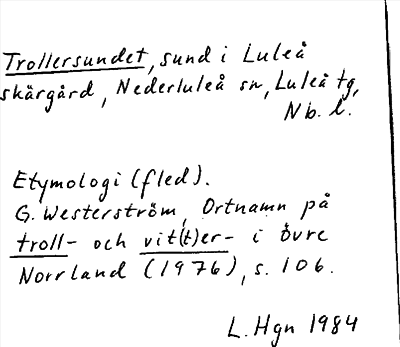 Trollersundet, sund i Luleå
skärgård, Nederluleå sn, Luleå tg,
Nb. l.
Etymologi (fled).
G. Westerström, Ortnamn på
troll- och vit(t)er- i övre
Norrland (1976), s. 106.
L. Hgn 1984